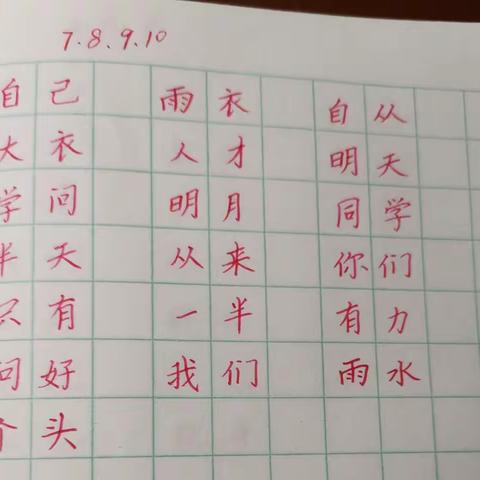 7.8.9.10
自己 雨衣 自从
大衣 人才 明天
学问 明月 同学
半天 从来 你们
只有 一半 有力
问好 我们 雨水
个头